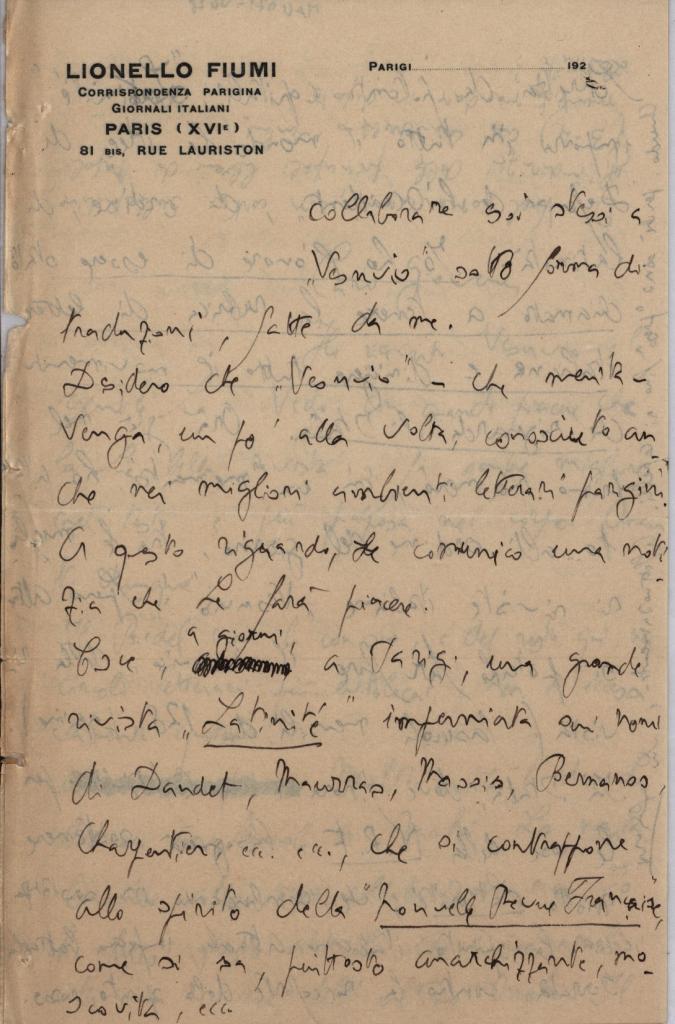 LIONELLO FIUMI
CORRISPONDENZA PARIGINA
GIORNALI ITALIANI
PARIS (XVIᵉ)
81 BIS, RUE LAURISTON
PARIGI 192
collaborare essi stessi a
"Vesuvio" sotto forma di
traduzioni, fatte da me.
Desidero che "Vesuvio" - che merita -
venga, un po' alla volta, conosciuto an
che nei migliori ambienti letterari parigini.
A questo riguardo, Le comunico una noti
zia che Le farà piacere.
Esce, a giorni, a Parigi, una grande
rivista "Latinité" imperniata sui nomi
di Daudet, Maurras, Massis, Bernanos,
Charpentier, ecc. ecc., che si contrappone
allo spirito della "Nouvelle Revue Française",
come si sa, piuttosto anarchizzante, mo-
scovita, ecc.